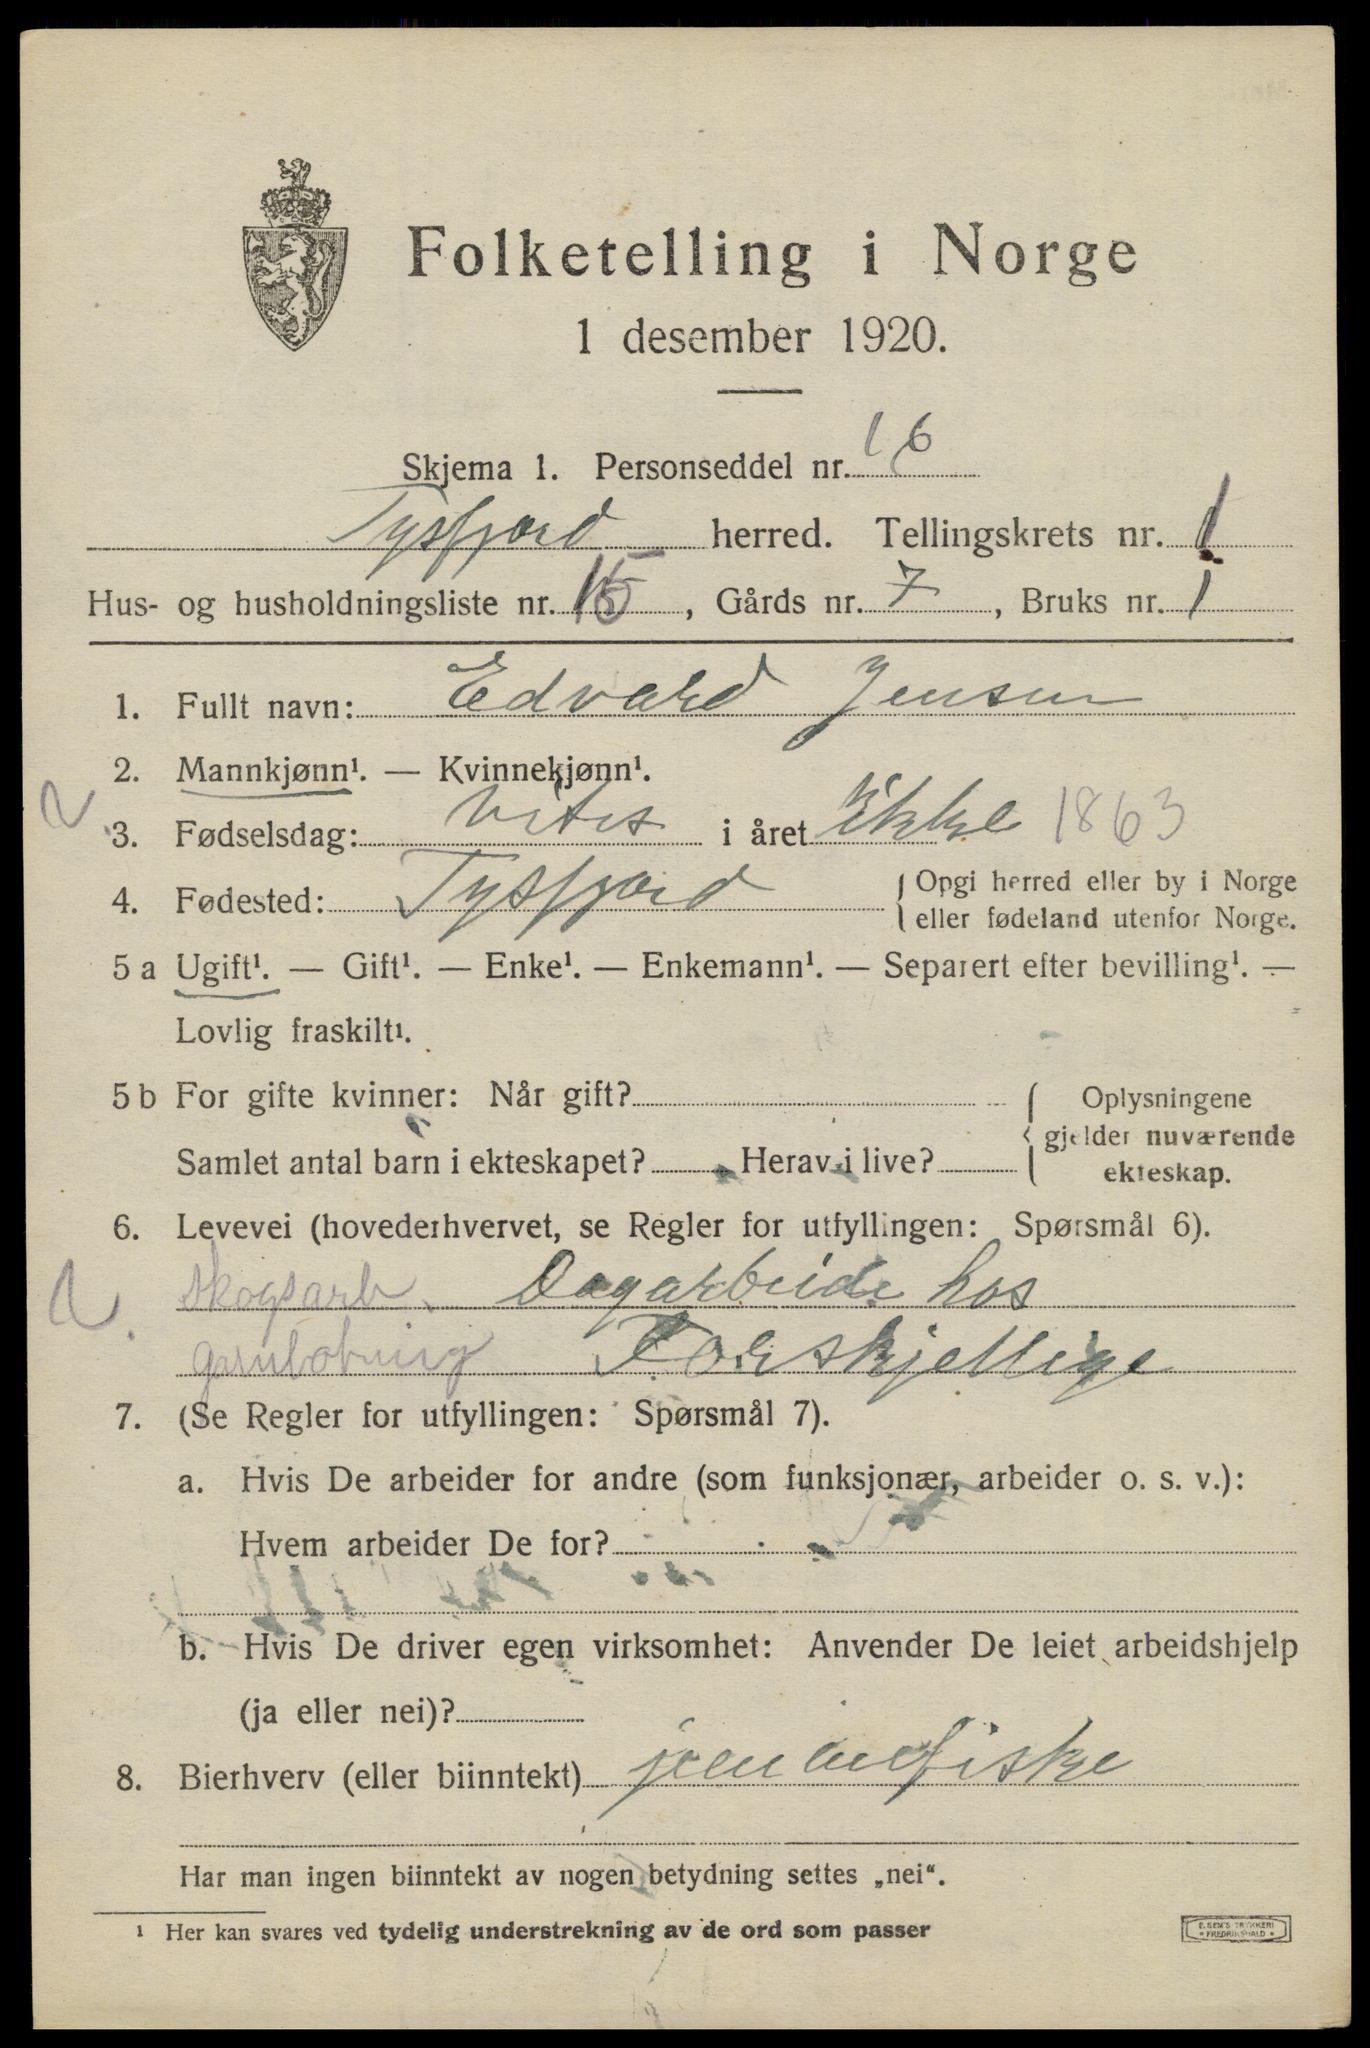 Folketelling i Norge
1 desember 1920.
Skjema 1. Personseddel nr. 16
Tysfjord herred. Tellingskrets nr. 1
Hus- og husholdningsliste nr. 15, Gårds nr. 7, Bruks nr. 1
1. Fullt navn: Edvard Jensen
2. Mannkjønn¹. — Kvinnekjønn¹.
3. Fødselsdag: vites i året Ikke 1863
4. Fødested: Tysfjord { Opgi herred eller by i Norge
eller fødeland utenfor Norge.
5 a Ugift¹. — Gift¹. — Enke¹. — Enkemann¹. — Separert efter bevilling¹. —
Lovlig fraskilt¹.
5 b For gifte kvinner: Når gift? { Oplysningene
gjelder nuværende
Samlet antal barn i ekteskapet? Herav i live?
ekteskap.
6. Levevei (hovederhvervet, se Regler for utfyllingen: Spørsmål 6).
Skogsarb. Dagarbeide hos
Forskjellige
7. (Se Regler for utfyllingen: Spørsmål 7).
a. Hvis De arbeider for andre (som funksjonær, arbeider o. s. v.):
Hvem arbeider De for?
b. Hvis De driver egen virksomhet: Anvender De leiet arbeidshjelp
(ja eller nei)?
8. Bierhverv (eller biinntekt)
Har man ingen biinntekt av nogen betydning settes „nei“.
¹ Her kan svares ved tydelig understrekning av de ord som passer
E. SEM'S TRYKKERI
FREDRIKSHALD